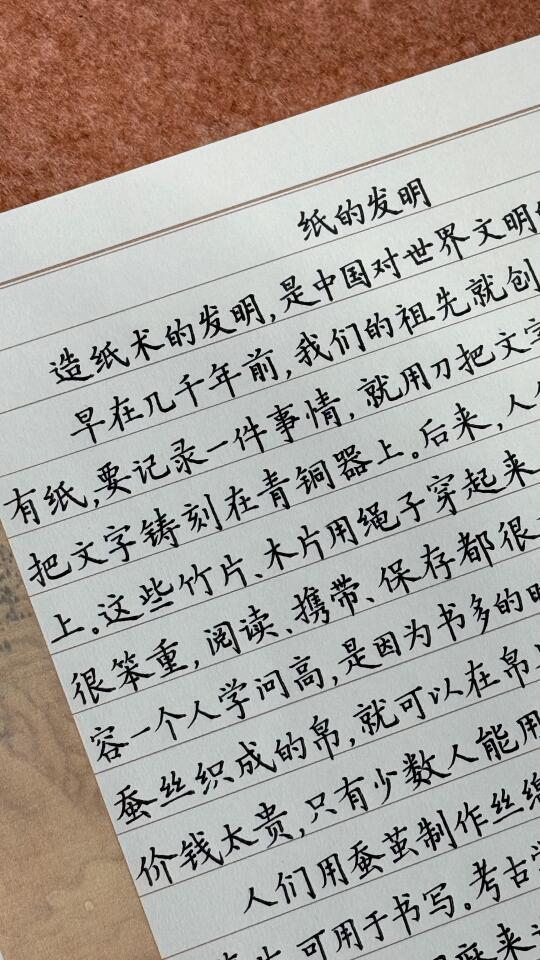 纸的发明
造纸术的发明,是中国对世界文明
早在几千年前,我们的祖先就创
有纸,要记录一件事情,就用刀把文字
把文字铸刻在青铜器上。后来,人
上。这些竹片、木片用绳子穿起来
很笨重,阅读、携带、保存都很
容一个人学问高,是因为书多的
蚕丝织成的帛,就可以在帛上
价钱太贵,只有少数人能用
人们用蚕茧制作丝绵
可用于书写。考古学
麻来